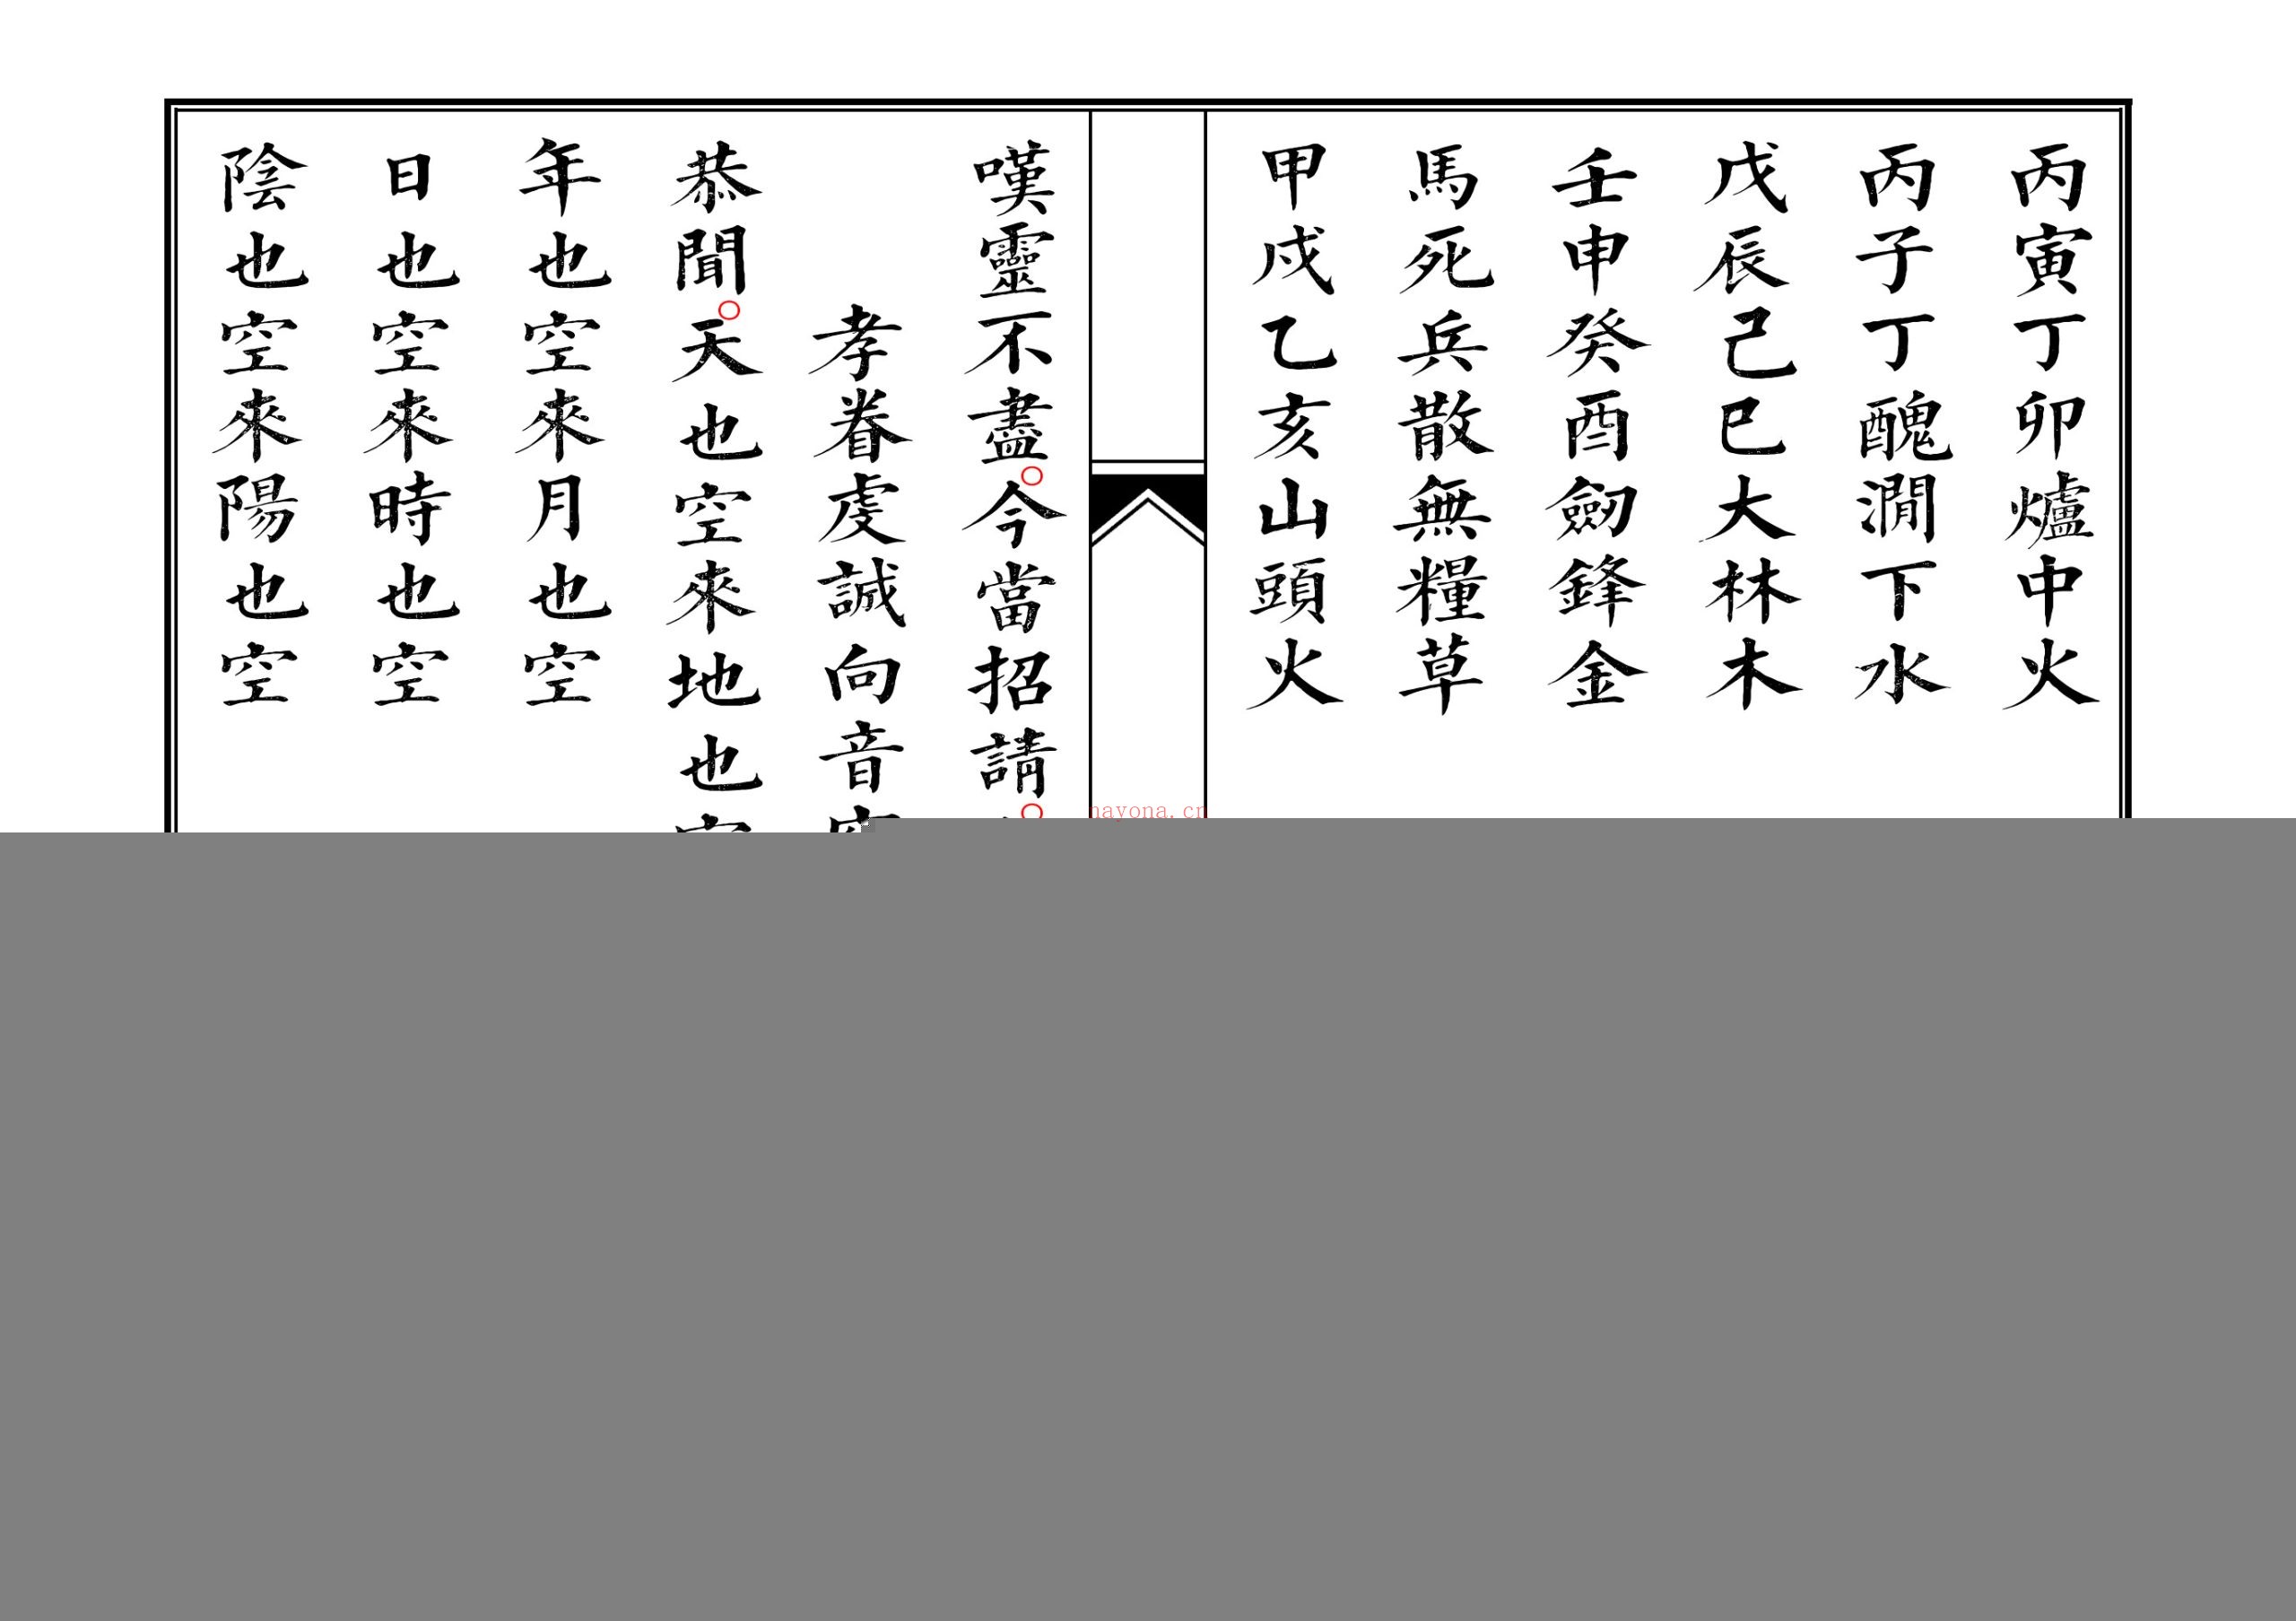 丙寅丁卯爐中火
丙子丁醜澗下水
戊辰己巳大林木
壬申癸酉劒鋒金
馬死兵散無糧草
甲戌乙亥山頭火
嘆靈不盡。今當招請。
孝眷虔誠向音
恭聞。天也空來地也
年也空來月也空
日也空來時也空
陰也空來陽也空
nayona.cn